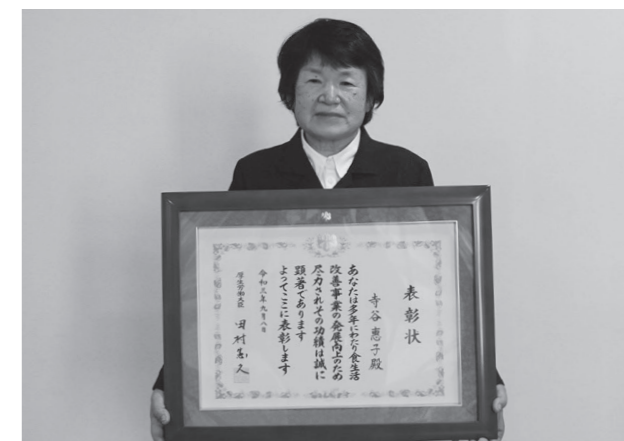 表彰状
寺谷恵子殿
あなたは多年にわたり食生活
改善事業の発展向上のため
尽力されその功績は誠に
顕著であります
よってここに表彰します
令和三年九月八日
厚生労働大臣 田村憲久